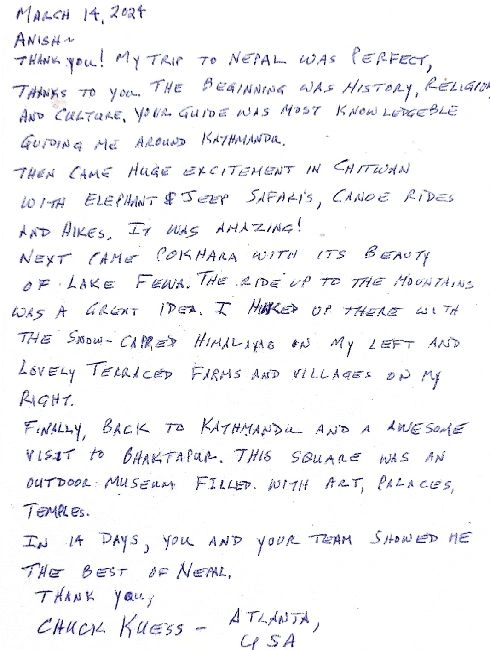 MARCH 14, 2024
ANISH~
THANK YOU! MY TRIP TO NEPAL WAS PERFECT,
THANKS TO YOU. THE BEGINNING WAS HISTORY, RELIGION
AND CULTURE. YOUR GUIDE WAS MOST KNOWLEDGEBLE
GUIDING ME AROUND KATHMANDU.
THEN CAME HUGE EXCITEMENT IN CHITWAN
WITH ELEPHANT & JEEP SAFARI'S, CANOE RIDES
AND HIKES. IT WAS AMAZING!
NEXT CAME POKHARA WITH ITS BEAUTY
OF LAKE FEWA. THE RIDE UP TO THE MOUNTAINS
WAS A GREAT IDEA. I HIKED UP THERE WITH
THE SNOW-CAPPED HIMALAYAS ON MY LEFT AND
LOVELY TERRACED FARMS AND VILLAGES ON MY
RIGHT.
FINALLY, BACK TO KATHMANDU AND A AWESOME
VISIT TO BHAKTAPUR. THIS SQUARE WAS AN
OUTDOOR MUSEUM FILLED WITH ART, PALACES,
TEMPLES.
IN 14 DAYS, YOU AND YOUR TEAM SHOWED ME
THE BEST OF NEPAL.
THANK YOU,
CHUCK KUESS - ATLANTA,
USA